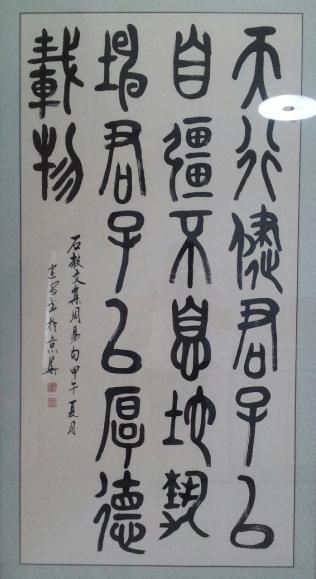 天行健君子以
自彊不息地勢
坤君子以厚德
載物
石鼓文集周易句甲午夏月
书於京華